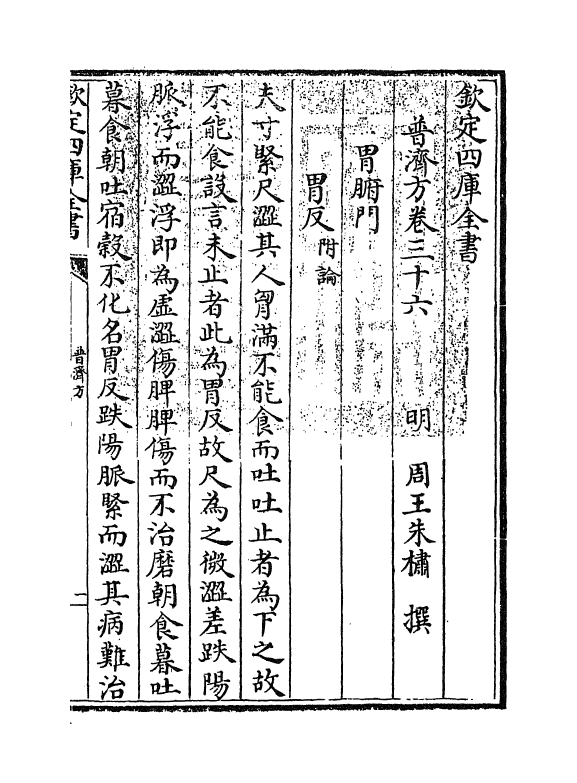 欽定四庫全書
普濟方卷三十六　明　周王朱橚　撰
胃腑門
胃反附論
夫寸緊尺澀其人胷滿不能食而吐吐止者為下之故
不能食設言未止者此為胃反故尺為之微澀差趺陽
脈浮而澀浮即為虛澀傷脾脾傷而不治磨朝食暮吐
暮食朝吐宿穀不化名胃反趺陽脈緊而澀其病難治
欽定四庫全書
普濟方
二